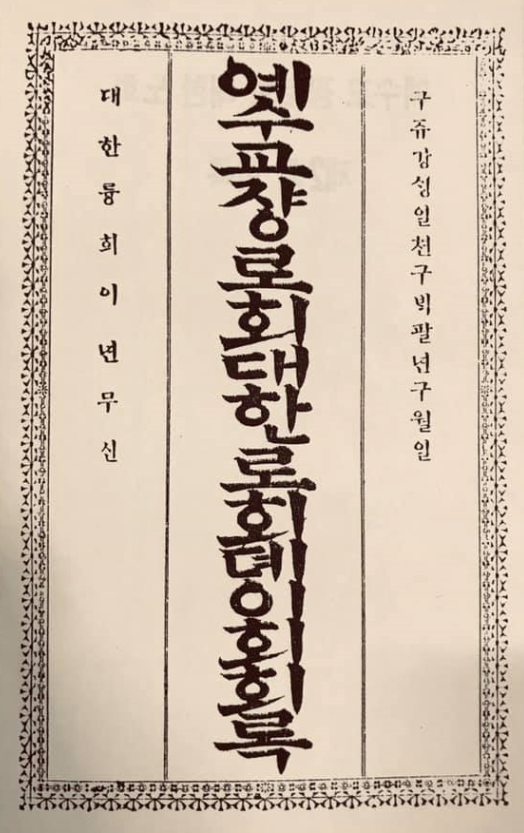 구쥬강ᄉᆡᆼ일천구ᄇᆡᆨ팔년구월일
예수교쟝로회대한로회뎨이회회록
대한륭희이년무신